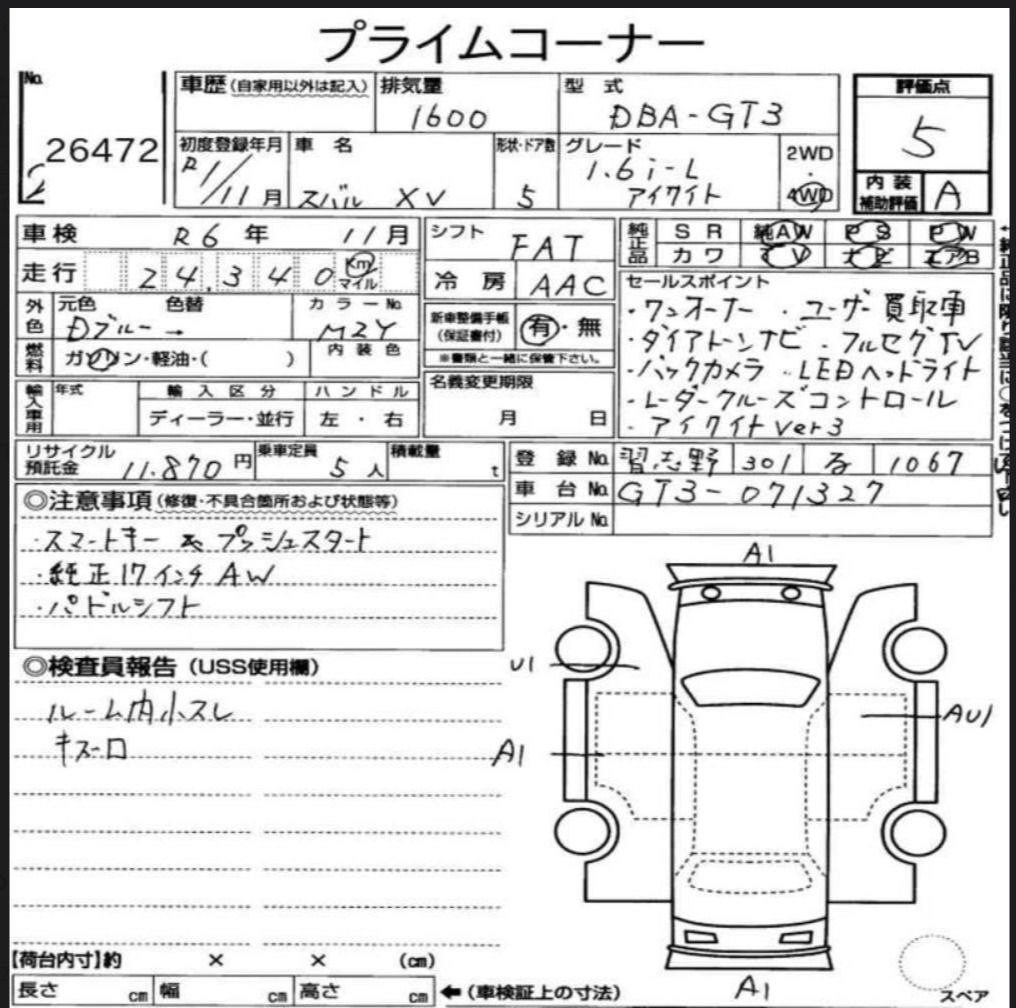 プライムコーナー
No.
26472
車歴 (自家用以外は記入)
排気量
1600
型 式
DBA-GT3
評価点
5
初度登録年月
R1/11月
車 名
スバル XV
形状・ドア数
5
グレード
1.6i-L
アイサイト
2WD
・
4WD
内 装
補助評価
A
車検 R6年 11月
シフト FAT
純正品
SR 純AW PS PW
カワ TV ナビ エアB
走行 24,340 Km
マイル
冷 房 AAC
外色
元色 色替 カラーNo.
Dブルー→ M2Y
新車整備手帳
(保証書付)
有・無
※書類と一緒に保管下さい。
セールスポイント
・ワンオーナー ・ユーザー買取車
・ダイアトーンナビ ・フルセグTV
・バックカメラ ・LEDヘッドライト
・レーダークルーズコントロール
・アイサイトver3
燃料
ガソリン・軽油・( )
内 装 色
輸入車用
年式
輸 入 区 分
ハ ン ド ル
ディーラー・並行
左 ・ 右
名義変更期限
月 日
リサイクル
預託金
11.870円
乗車定員
5人
積載量
t
登 録 No. 習志野 301 1067
車 台 No. GT3-071327
シリアル No.
◎注意事項(修復・不具合箇所および状態等)
・スマートキー & プッシュスタート
・純正17インチAW
・パドルシフト
◎検査員報告(USS使用欄)
ルーム内小スレ
キズ
A1
U1
AU1
A1
A1
スペア
【荷台内寸】約 × × (cm)
長さ cm 幅 cm 高さ cm ←(車検証上の寸法)